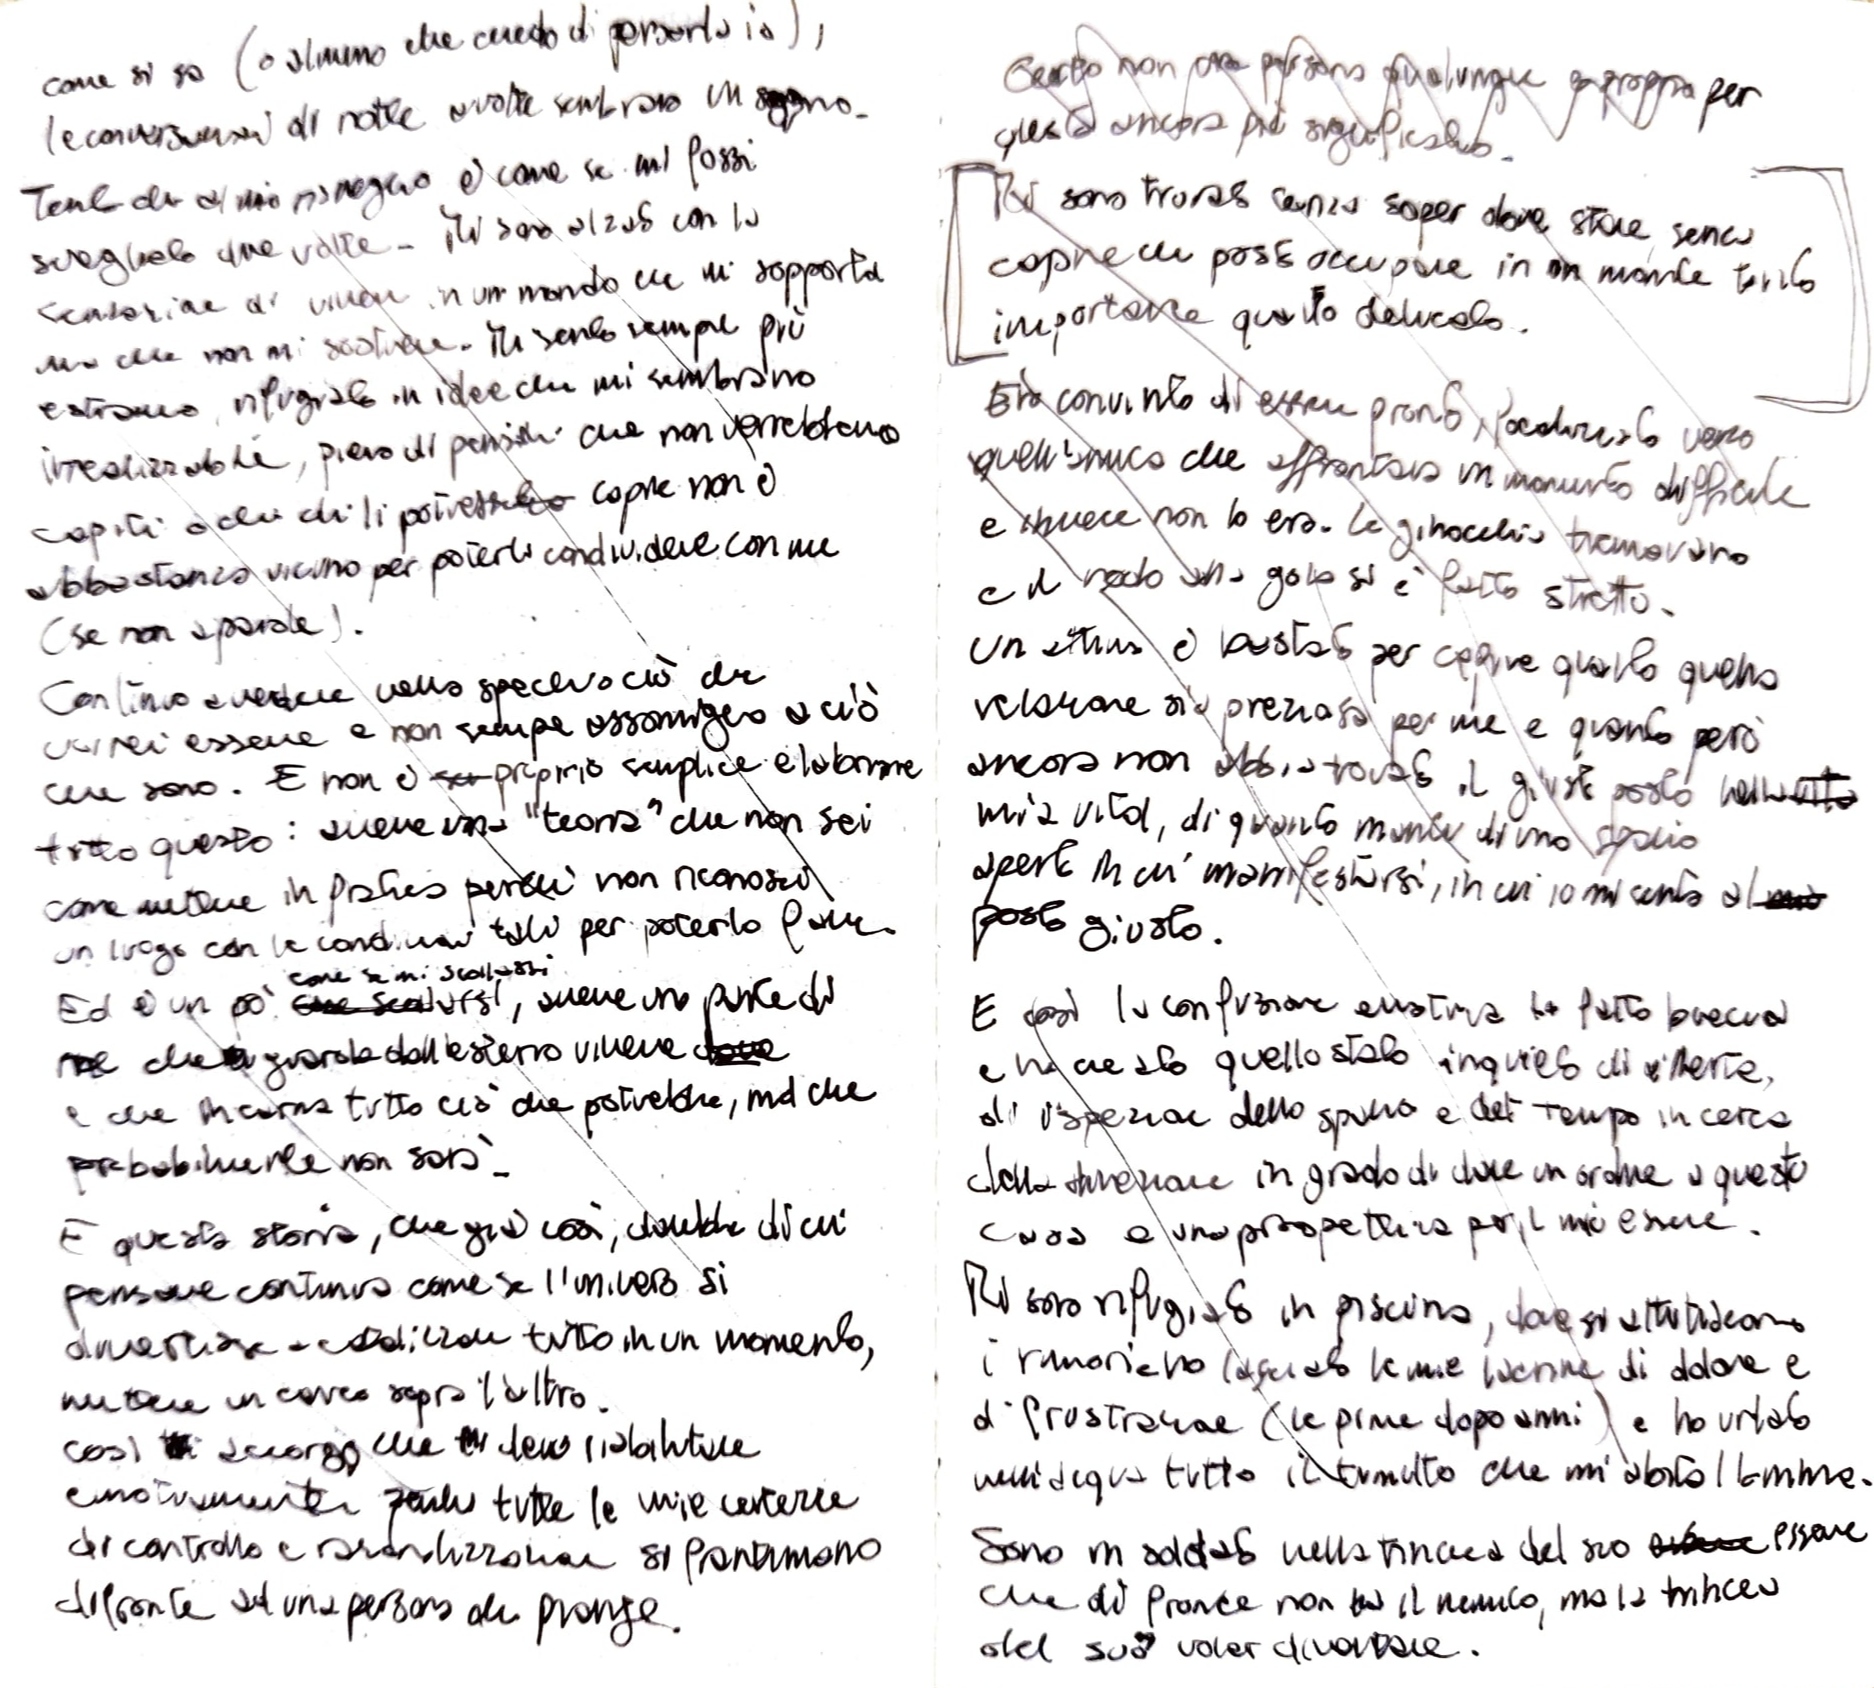 come si sa (o almeno che credo di pensarla io),
le conversazioni di notte a volte sembrano un sogno.
Tanto che al mio risveglio è come se mi fossi
svegliato due volte - Mi sono alzato con la
sensazione di vivere in un mondo che mi sopporta
ma che non mi sostiene. Mi sento sempre più
estraneo, rifugiato in idee che mi sembrano
irrealizzabili, pieno di pensieri che non verrebbero
capiti o che chi li potrebbe capire non è
abbastanza vicino per poterli condividere con me
(se non a parole).
Continuo a vedere nello specchio ciò che
vorrei essere e non sempre assomiglio a ciò
che sono. E non è proprio semplice elaborare
tutto questo: avere una "teoria" che non sei
come mettere in pratica perché non riconosci
un luogo con le condizioni tali per poterlo fare.
come se mi scollassi
Ed è un po' , avere una parte di
me che guarda dall'esterno vivere
e che incarna tutto ciò che potrebbe, ma che
probabilmente non sarà -
E questa storia, che già così, darebbe di cui
pensare continua come se l'universo si
divertisse a tutto in un momento,
mettere un carico sopra l'altro.
così accorgo che devo riabilitare
emotivamente tutte le mie certezze
di controllo e razionalizzazione si frantumano
difronte ad una persona che piange.
Certo non una persona qualunque e proprio per
questo ancora più significativo.
Mi sono trovato senza saper dove stare, senza
capire che posto occupare in un momento tanto
importante quanto delicato.
Ero convinto di essere pronto, verso
quell'amica che affrontava un momento difficile
e invece non lo ero. Le ginocchia tremavano
e il nodo alla gola si è fatto stretto.
Un attimo è bastato per capire quanto quella
relazione sia preziosa per me e quanto però
ancora non abbia trovato il giusto posto nella
mia vita, di quanto manchi di uno spazio
aperto in cui manifestarsi, in cui io mi senta al
posto giusto.
E così la confusione emotiva ha fatto breccia
e ha creato quello stato inquieto di allerta,
di ispezione dello spazio e del tempo in cerca
della direzione in grado di dare un ordine a questo
caos e una prospettiva per il mio essere.
Mi sono rifugiato in piscina, dove si attutiscono
i rumori e ho lasciato le mie lacrime di dolore e
di frustrazione (le prime dopo anni) e ho urlato
nell'acqua tutto il tumulto che mi abita l'anima.
Sono un soldato nella trincea del suo essere
che di fronte non ha il nemico, ma la trincea
del suo voler diventare.